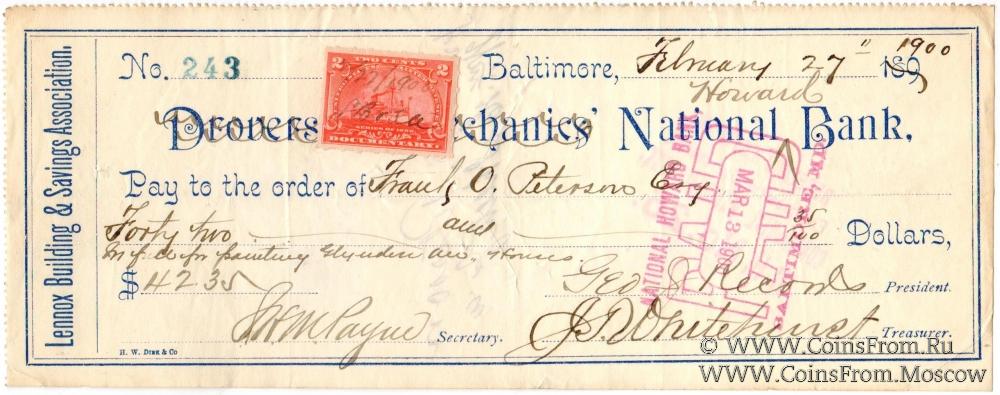 Lennox Building & Savings Association.
No. 243
TWO CENTS
2 2
SERIES OF 1898
DOCUMENTARY.
Baltimore, February 27" 1900 189
Howard
Drovers chanics' National Bank.
Pay to the order of Frank O. Peterson Esq
Forty two and 35/100 Dollars,
for painting Glyndon ave. Houses
$ 42 35
Geo S. Records President.
Wm Payne Secretary.
J. D. Whitehurst Treasurer.
H. W. DIRK & CO
NATIONAL HOWARD BANK
PAID
MAR 13 19
BALTIMORE, MD.
© WWW.COINSFROM.RU
WWW.COINSFROM.MOSCOW